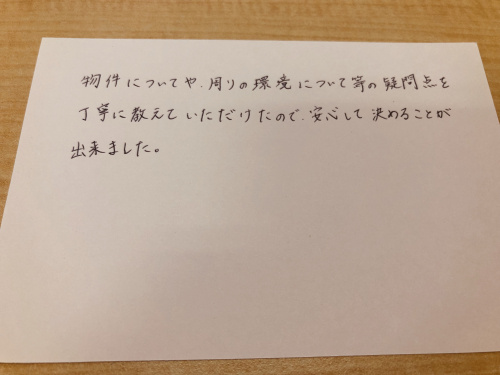 物件についてや、周りの環境について等の疑問点を
丁寧に教えていただけたので、安心して決めることが
出来ました。